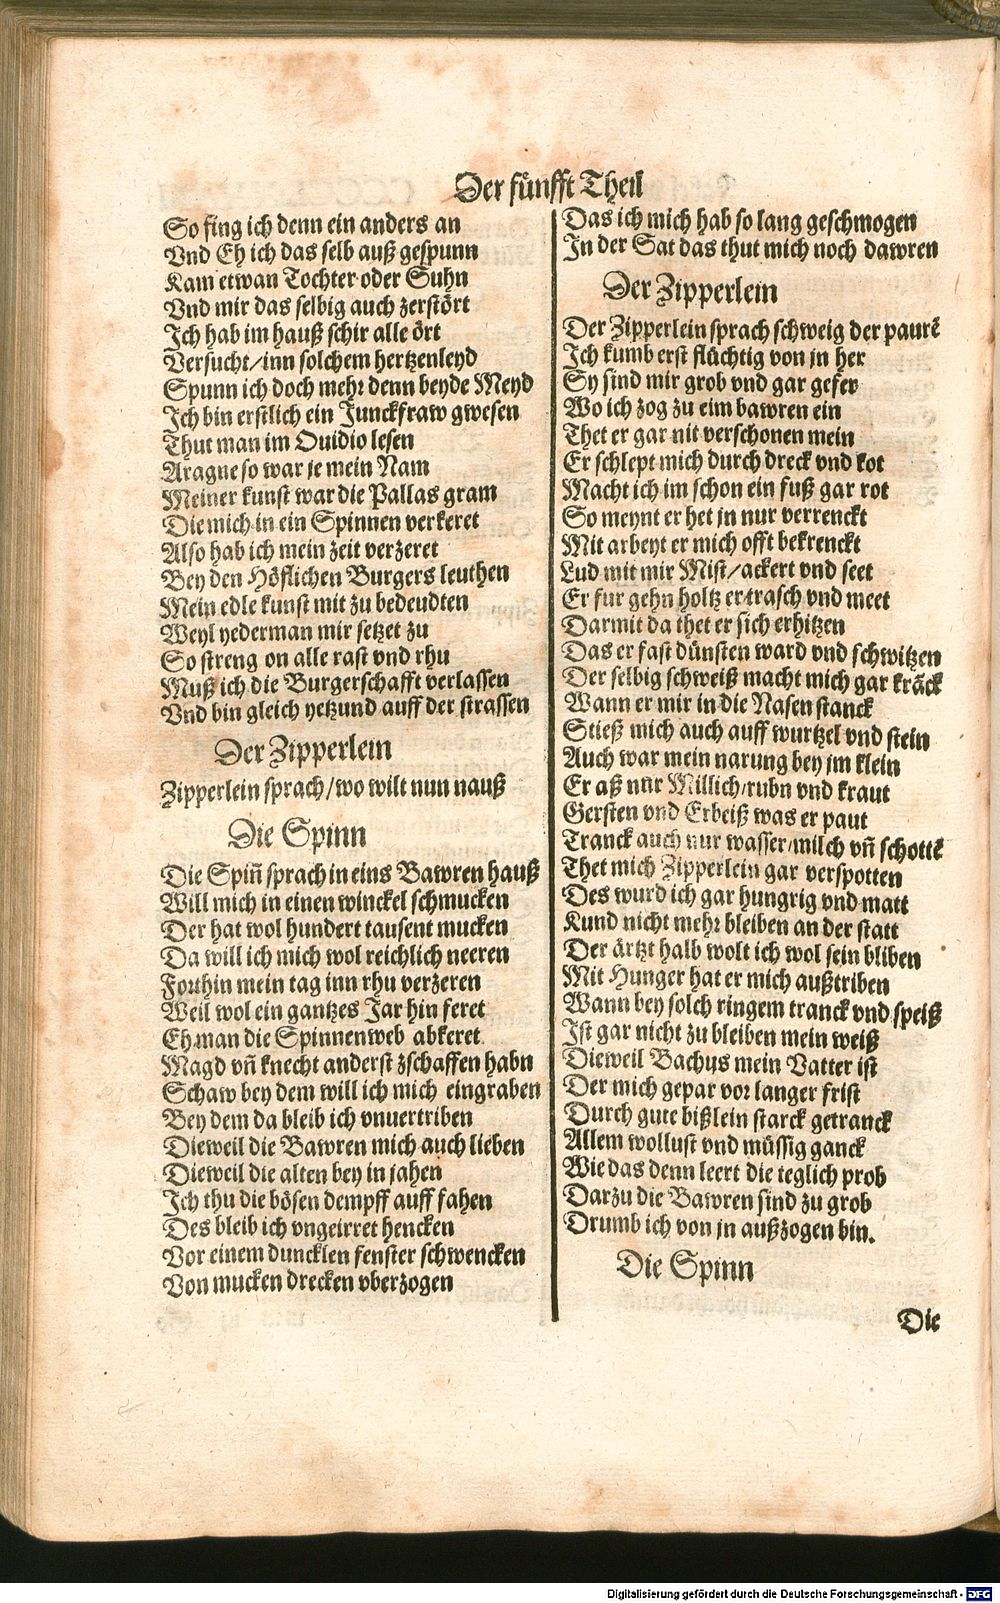 Der fünfft Theil
So fing ich denn ein anders an
Vnd Eh ich das selb auß gespunn
Kam etwan Tochter oder Suhn
Vnd mir das selbig auch zerstört
Ich hab im hauß schir alle ört
Versucht/inn solchem hertzenleyd
Spunn ich doch mehr denn beyde Meyd
Ich bin erstlich ein Junckfraw gwesen
Thut man im Ouidio lesen
Aragne so war je mein Nam
Meiner kunst war die Pallas gram
Die mich in ein Spinnen verkeret
Also hab ich mein zeit verzeret
Bey den Höflichen Burgers leuthen
Mein edle kunst mit zu bedeudten
Weyl yederman mir setzet zu
So streng on alle rast vnd rhu
Muß ich die Burgerschafft verlassen
Vnd bin gleich yetzund auff der strassen
Der Zipperlein
Zipperlein sprach/wo wilt nun nauß
Die Spinn
Die Spiñ sprach in eins Bawren hauß
Will mich in einen winckel schmucken
Der hat wol hundert tausent mucken
Da will ich mich wol reichlich neeren
Forthin mein tag inn rhu verzeren
Weil wol ein gantzes Jar hin feret
Eh man die Spinnenweb abkeret
Magd vñ knecht anderst zschaffen habn
Schaw bey dem will ich mich eingraben
Bey dem da bleib ich vnuertriben
Dieweil die Bawren mich auch lieben
Dieweil die alten bey in jahen
Ich thu die bösen dempff auff fahen
Des bleib ich vngeirret hencken
Vor einem duncklen fenster schwencken
Von mucken drecken vberzogen
Das ich mich hab so lang geschmogen
In der Sat das thut mich noch dawren
Der Zipperlein
Der Zipperlein sprach schweig der paurẽ
Ich kumb erst flüchtig von jn her
Sy sind mir grob vnd gar gefer
Wo ich zog zu eim bawren ein
Thet er gar nit verschonen mein
Er schlept mich durch dreck vnd kot
Macht ich im schon ein fuß gar rot
So meynt er het jn nur verrenckt
Mit arbeyt er mich offt bekrenckt
Lud mit mir Mist/ackert vnd seet
Er fur gehn holtz er trasch vnd meet
Darmit da thet er sich erhitzen
Das er fast dünsten ward vnd schwitzen
Der selbig schweiß macht mich gar krãck
Wann er mir in die Nasen stanck
Stieß mich auch auff wurtzel vnd stein
Auch war mein narung bey jm klein
Er aß nur Millich/rubn vnd kraut
Gersten vnd Erbeiß was er paut
Tranck auch nur wasser/milch vñ schottẽ
Thet mich Zipperlein gar verspotten
Des wurd ich gar hungrig vnd matt
Kund nicht mehr bleiben an der statt
Der ärtzt halb wolt ich wol sein bliben
Mit Hunger hat er mich außtriben
Wann bey solch ringem tranck vnd speiß
Ist gar nicht zu bleiben mein weiß
Dieweil Bachus mein Vatter ist
Der mich gepar vor langer frist
Durch gute bißlein starck getranck
Allem wollust vnd müssig ganck
Wie das denn leert die teglich prob
Darzu die Bawren sind zu grob
Drumb ich von jn außzogen bin.
Die Spinn
Die
Digitalisierung gefördert durch die Deutsche Forschungsgemeinschaft - DFG